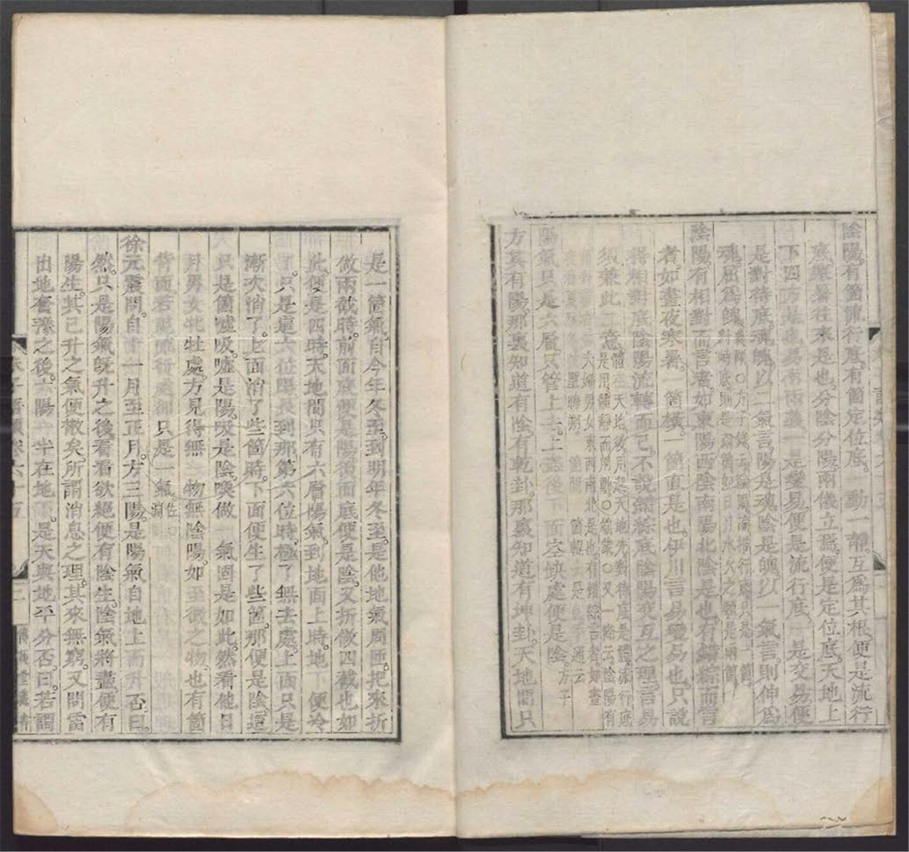 陰陽有箇流行底有箇定位底一動一靜互為其根便是流行
底寒暑往來是也分陰分陽兩儀立焉便是定位底天地上
下四方是也易有兩義一是變易便是流行底一是交易便
是對待底魂魄以二氣言陽是魂陰是魄以一氣言則伸為
魂屈為魄
陰陽有相對而言者如東陽西陰南陽北陰是也有錯綜而言
者如晝夜寒暑一箇橫一箇直是也伊川言易變易也只說
得相對底陰陽流轉而已不說錯綜底陰陽交互之理言易
須兼此二意
陽氣只是六層只管上去上盡後下面空缺處便是陰方子
方其有陽那裏知道有陰有乾卦那裏知道有坤卦天地間只
是一箇氣自今年冬至到明年冬至是他地氣周匝把來折
做兩截時前面底便是陽後面底便是陰又折做四截也如
此便是四時天地間只有六層陽氣到地面上時地下便冷
了只是這六位陽長到那第六位時極了無去處上面只是
漸次消了上面消了些箇時下面便生了些箇那便是陰這
只是箇噓吸噓是陽吸是陰喚做一氣固是如此然看他日
月男女牝牡處方見得無一物無陰陽如至微之物也有箇
背面若說流行處卻只是一氣
徐元震問自十一月至正月方三陽是陽氣自地上而升否曰
然只是陽氣既升之後看看欲絕便有陰生陰氣將盡便有
陽生其已升之氣便散矣所謂消息之理其來無窮又問雷
出地奮豫之後六陽一半在地下是天與地平分否曰若謂